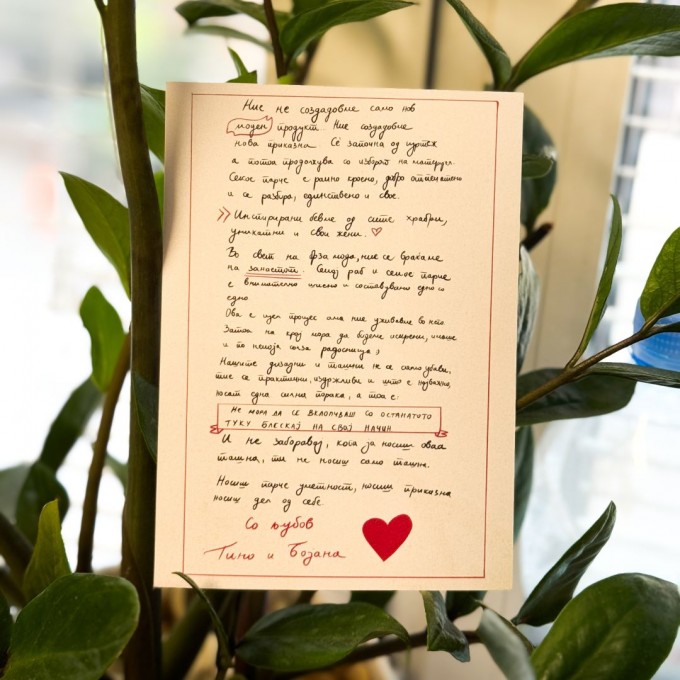 Ние не создадовме само нов
моден продукт. Ние создадовме
нова приказна. Сè започна од цртеж
а потоа продолжува со избирање на материјал.
Секое парче е рачно кроено, добро отпегалено
и се разбира, единствено и свое.
Инспирирани бевме од сите храбри,
уникатни и свои жени.
Во свет на брза мода, ние се враќаме
на занаетот. Секој раб и секое парче
е внимателно шиено и составувано едно и
едно
Ова е цел процес ама ние уживавме во него
Затоа на крај мора да бидеме искрени, имаше
и по некоја солза радосница :)
Нашите дизајни и ташни не се само убави,
тие се практични, издржливи и што е најважно,
носат една силна порака, а тоа е:
НЕ МОРА ДА СЕ ВКЛОПУВАШ СО ОСТАНАТОТО
ТУКУ БЛЕСКАЈ НА СВОЈ НАЧИН
И не заборавај, кога ја носиш оваа
ташна, ти не носиш само ташна.
Носиш парче уметност, носиш приказна
носиш дел од себе.
Со љубов
Тино и Бозана